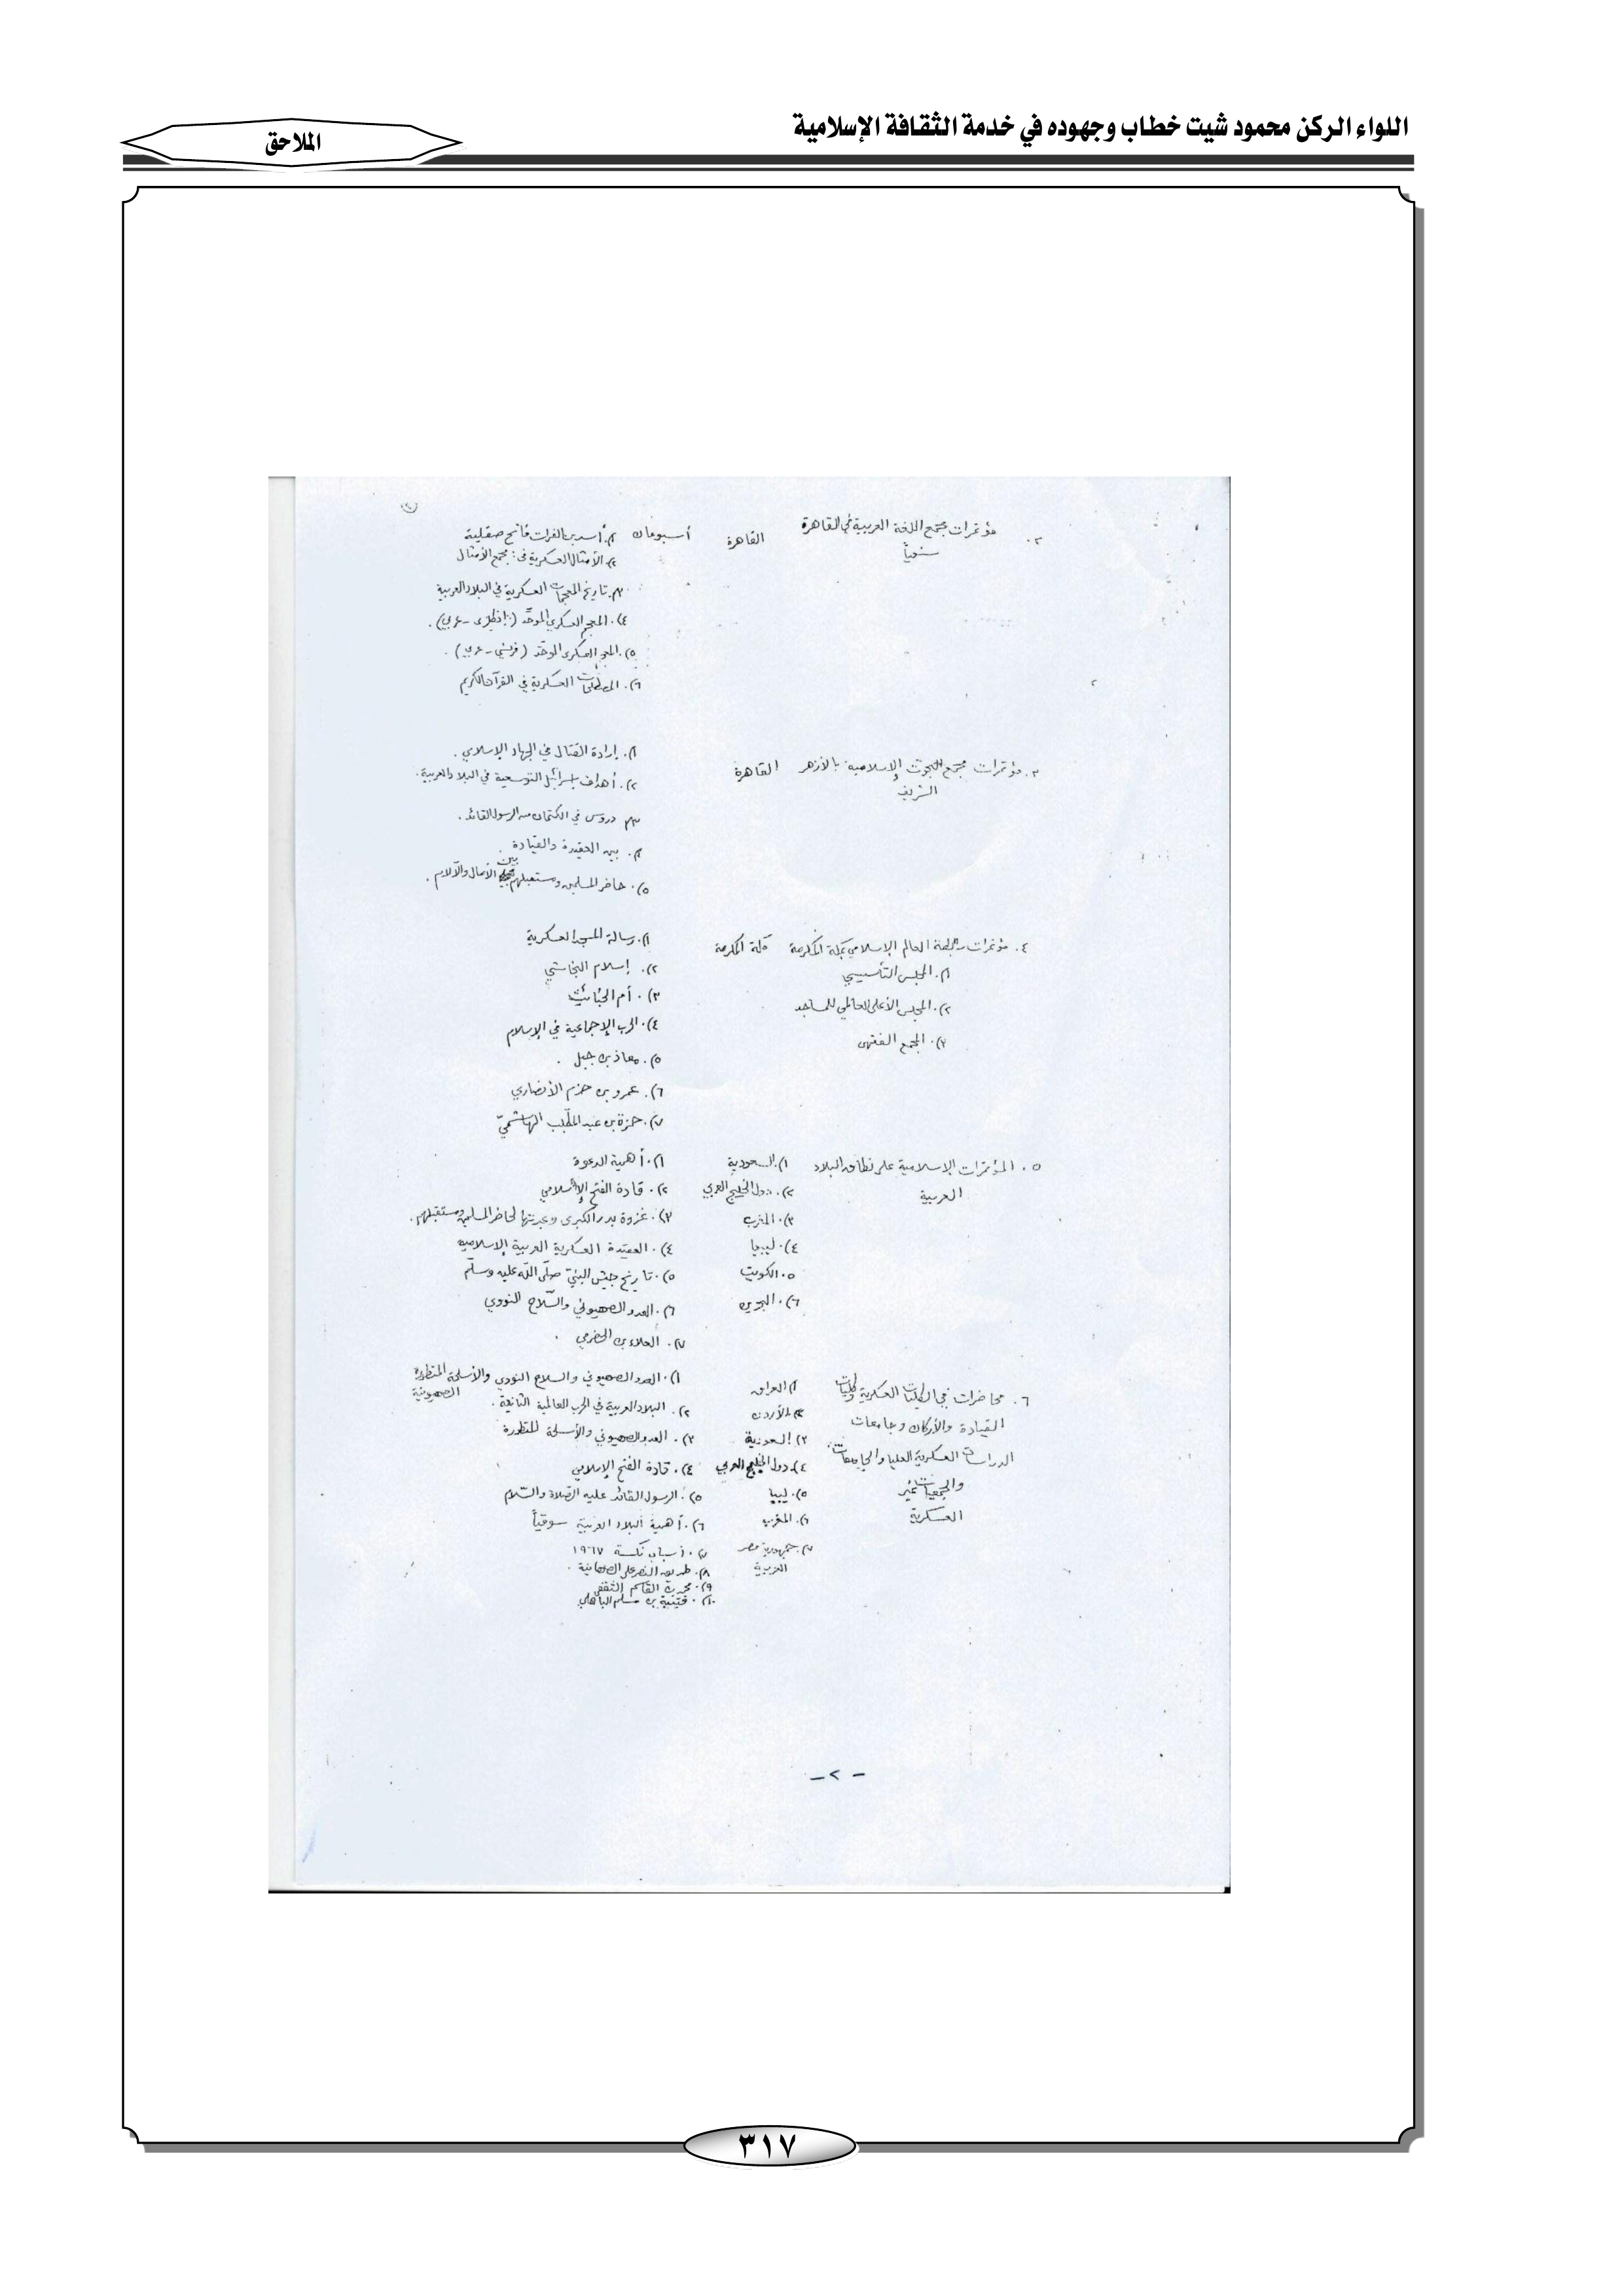 اللواء الركن محمود شيت خطاب وجهوده في خدمة الثقافة الإسلامية
الملاحق
٢. مؤتمرات مجمع اللغة العربية في القاهرة
سنوياً
القاهرة
أسبوعان
١). أسد بن الفرات فاتح صقلية
٢). الأمثال العسكرية في: مجمع الأمثال
٣). تاريخ المعجمات العسكرية في البلاد العربية
٤). المعجم العسكري الموحّد (إنكليزي - عربي).
٥). المعجم العسكري الموحّد (فرنسي - عربي).
٦). المصطلحات العسكرية في القرآن الكريم
٣. مؤتمرات مجمع البحوث الإسلامية بالأزهر
الشريف
القاهرة
١). إرادة القتال في الجهاد الإسلامي.
٢). أهداف إسرائيل التوسعية في البلاد العربية.
٣). دروس في الكتمان من الرسول القائد.
٤). بين العقيدة والقيادة.
٥). حاضر المسلمين ومستقبلهم بين الآمال والآلام.
٤. مؤتمرات رابطة العالم الإسلامي بمكة المكرمة
١). المجلس التأسيسي
٢). المجلس الأعلى العالمي للمساجد
٣). المجمع الفقهي
مكة المكرمة
١). رسالة المسجد العسكرية
٢). إسلام النجاشي
٣). أم الخبائث
٤). الحرب الإجماعية في الإسلام
٥). معاذ بن جبل.
٦). عمرو بن حزم الأنصاري
٧). حمزة بن عبد المطّلب الهاشميّ
٥. المؤتمرات الإسلامية على نطاق البلاد
العربية
١). السعودية
٢). دول الخليج العربي
٣). المغرب
٤). ليبيا
٥. الكويت
٦). البحرين
١). أهمية الدعوة
٢). قادة الفتح الإسلامي
٣). غزوة بدر الكبرى وعبرتها لحاضر المسلمين ومستقبلهم.
٤). العقيدة العسكرية العربية الإسلامية
٥). تاريخ جيش النبيّ صلّى الله عليه وسلّم
٦). العدو الصهيوني والسّلاح النووي
٧). العلاء بن الحضرمي.
٦. محاضرات في الكليات العسكرية وكليات
القيادة والأركان وجامعات
الدراسات العسكرية العليا والجامعات
والجمعيات غير
العسكرية
١). العراق
٢). الأردن
٣). السعودية
٤). دول الخليج العربي
٥). ليبيا
٦). المغرب
٧). جمهورية مصر
العربية
١). العدو الصهيوني والسلاح النووي والأسلحة المتطورة
الصهيونية
٢). البلاد العربية في الحرب العالمية الثانية.
٣). العدو الصهيوني والأسلحة المتطورة
٤). قادة الفتح الإسلامي
٥). الرسول القائد عليه الصّلاة والسّلام
٦). أهمية البلاد العربية سوقياً
٧). أسباب نكسة ١٩٦٧
٨). طريق النصر على الصهاينة.
٩). محمد بن القاسم الثقفي
١٠). قتيبة بن مسلم الباهلي
- ٢ -
٣١٧